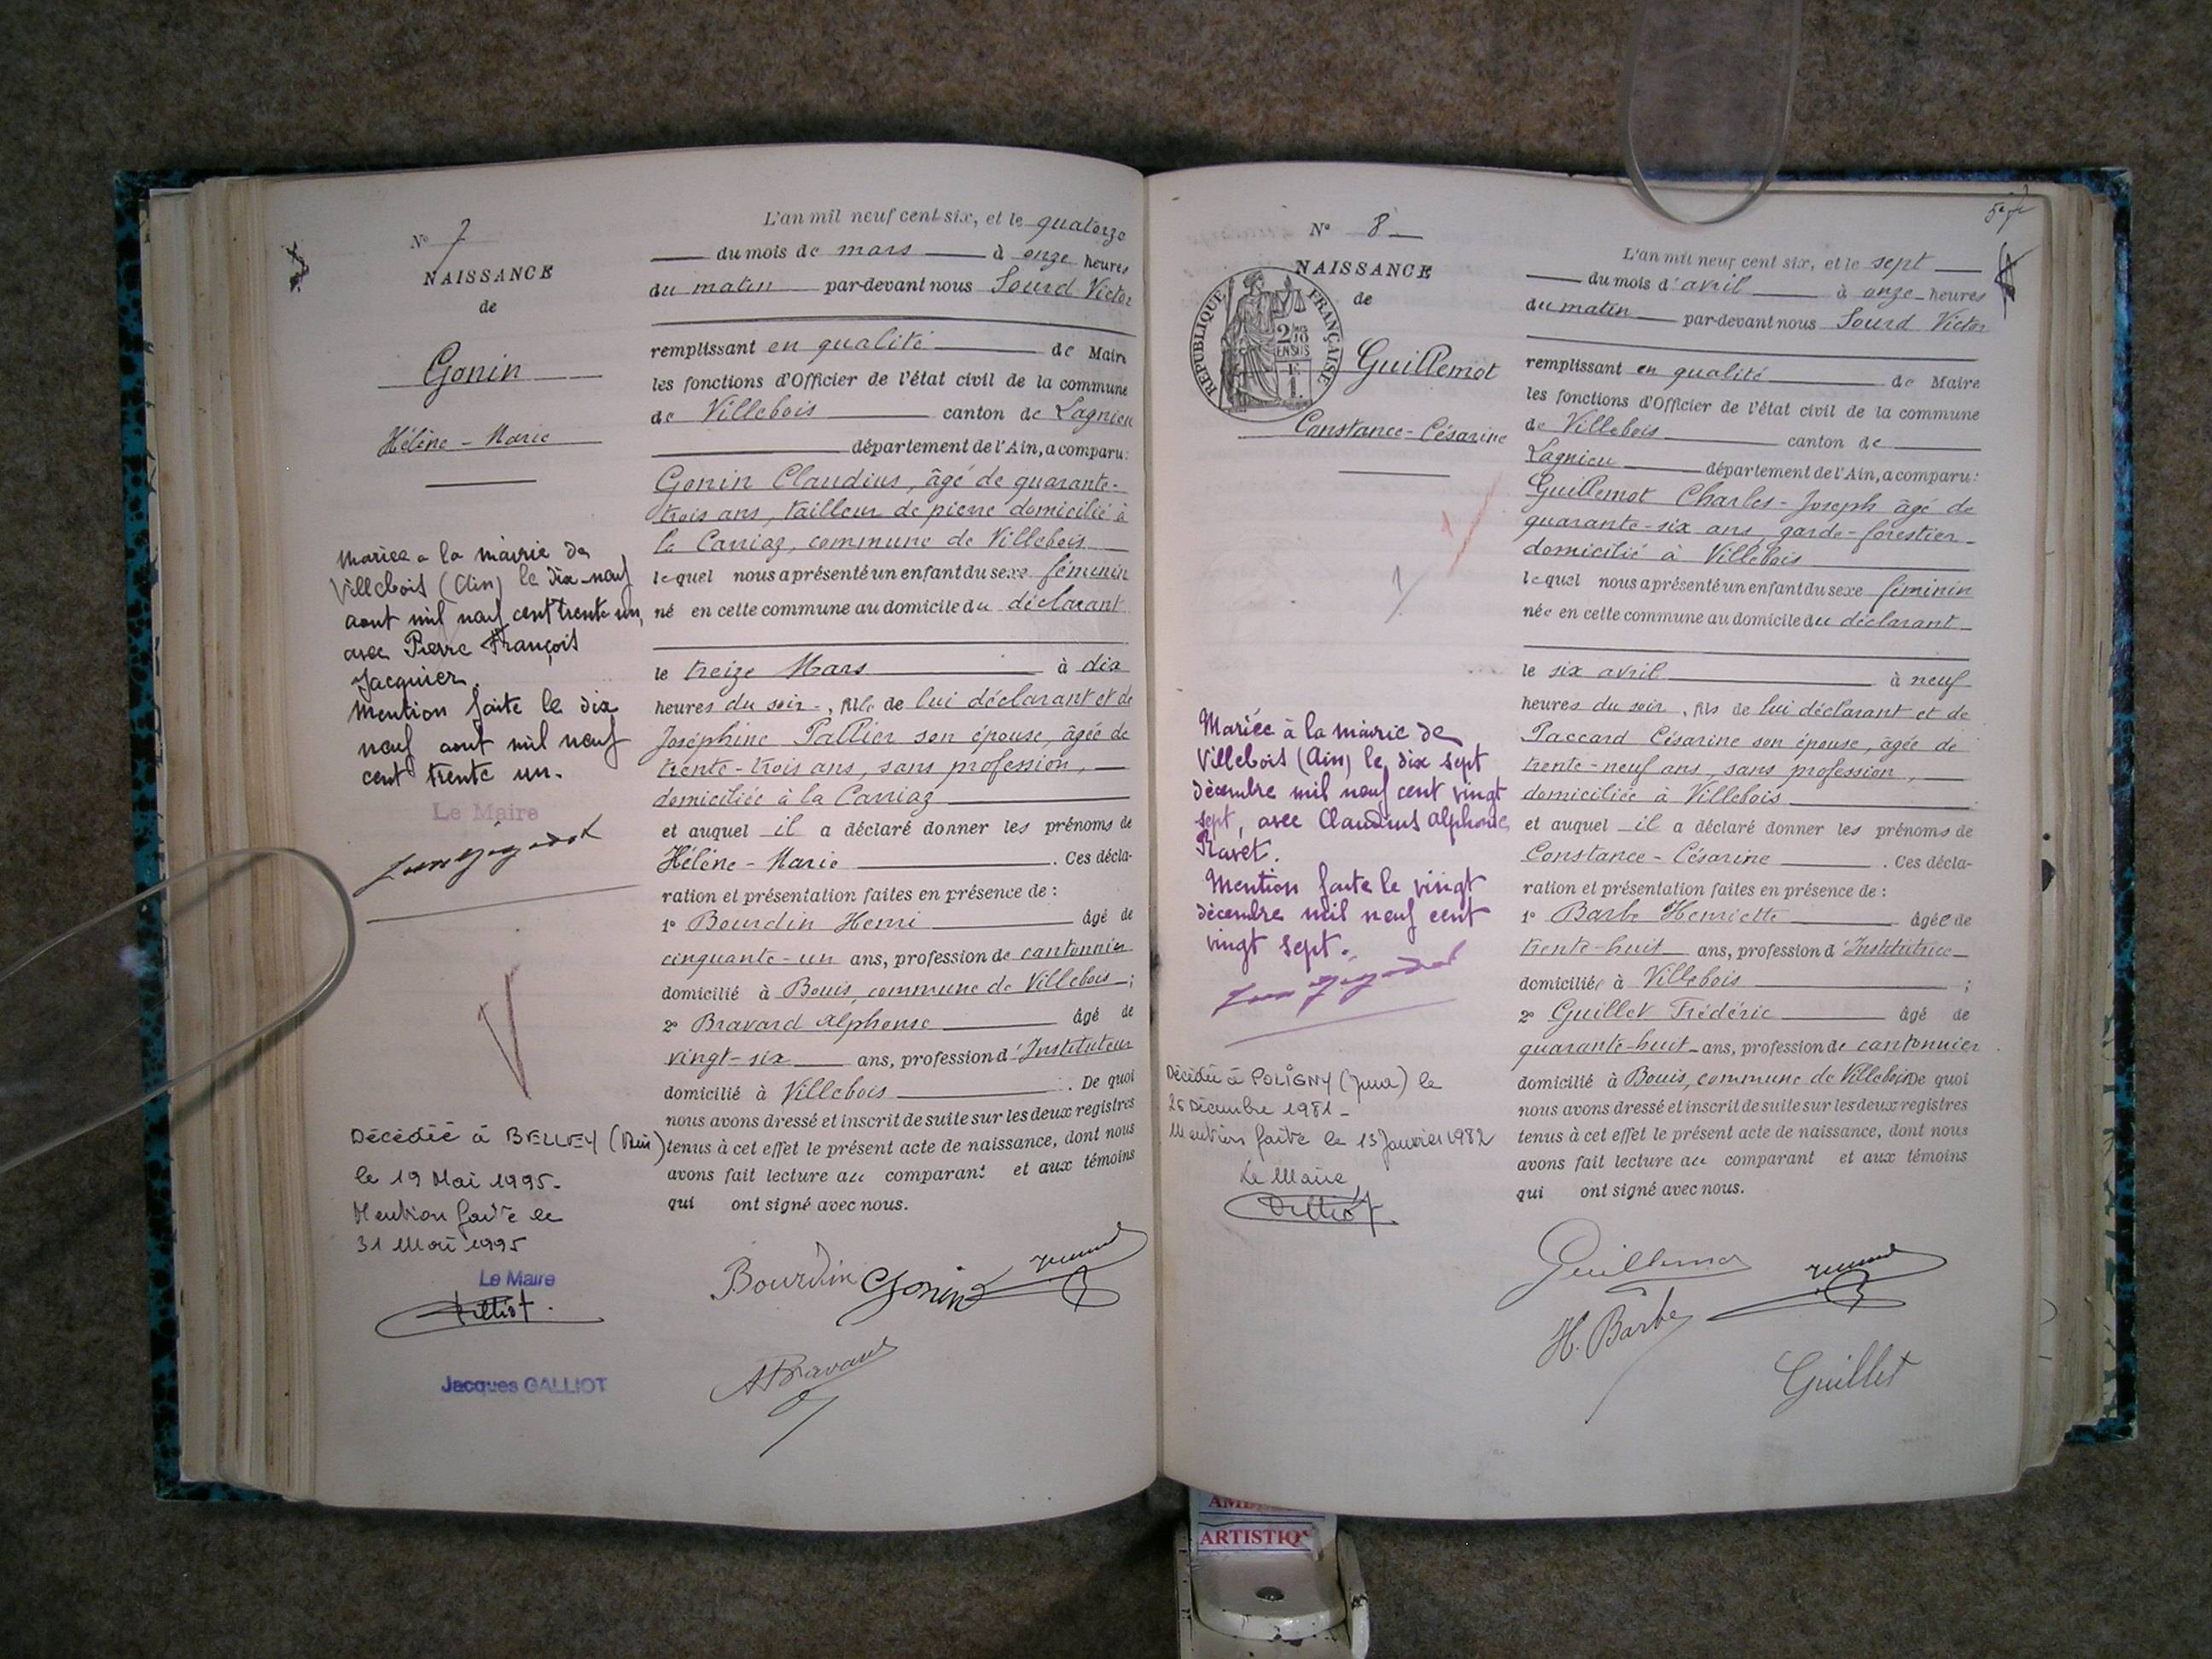 N° 7
NAISSANCE
de
Gonin
Hélène - Marie
Mariée a la mairie de
Villebois (Ain) le dix-neuf
aout mil neuf cent trente un,
avec Pierre François
Jacquier.
Mention faite le dix
neuf aout mil neuf
cent trente un.
Le Maire
Décédée à BELLEY (Ain)
le 19 Mai 1995.
Mention faite le
31 Mai 1995
Le Maire
Jacques GALLIOT
L'an mil neuf cent six, et le quatorze
du mois de mars à onze heures
du matin par-devant nous Sourd Victor
remplissant en qualité de Maire
les fonctions d'Officier de l'état civil de la commune
de Villebois canton de Lagnieu
département de l'Ain, a comparu:
Gonin Claudius, âgé de quarante-
trois ans, tailleur de pierre domicilié à
la Carriaz, commune de Villebois
lequel nous a présenté un enfant du sexe féminin
né en cette commune au domicile du déclarant
le treize Mars à dix
heures du soir, fille de lui déclarant et de
Joséphine Pallier son épouse, âgée de
trente-trois ans, sans profession,
domiciliée à la Carriaz
et auquel il a déclaré donner les prénoms de
Hélène - Marie . Ces décla-
ration et présentation faites en présence de :
1° Bourdin Henri âgé de
cinquante-un ans, profession de cantonnier
domicilié à Bouis, commune de Villebois ;
2° Bravard Alphonse âgé de
vingt-six ans, profession d'Instituteur
domicilié à Villebois . De quoi
nous avons dressé et inscrit de suite sur les deux registres
tenus à cet effet le présent acte de naissance, dont nous
avons fait lecture au comparant et aux témoins
qui ont signé avec nous.
Bourdin Gonin
ABravard
N° 8
NAISSANCE
de
REPUBLIQUE FRANÇAISE
Guillemot
Constance - Césarine
Mariée à la mairie de
Villebois (Ain) le dix sept
décembre mil neuf cent vingt
sept, avec Claudius Alphonse
Ravet.
Mention faite le vingt
décembre mil neuf cent
vingt sept.
Décédée à POLIGNY (Jura) le
Décembre 1981 -
Mention faite le 13 Janvier 1982
Le Maire
L'an mil neuf cent six, et le sept
du mois d'avril à onze heures
du matin par-devant nous Sourd Victor
remplissant en qualité de Maire
les fonctions d'Officier de l'état civil de la commune
de Villebois canton de
Lagnieu département de l'Ain, a comparu:
Guillemot Charles-Joseph âgé de
quarante-six ans, garde-forestier
domicilié à Villebois
lequel nous a présenté un enfant du sexe féminin
née en cette commune au domicile du déclarant
le six avril à neuf
heures du soir, fils de lui déclarant et de
Paccard Césarine son épouse, âgée de
trente-neuf ans, sans profession,
domiciliée à Villebois
et auquel il a déclaré donner les prénoms de
Constance - Césarine . Ces décla-
ration et présentation faites en présence de :
1° Barbe Henriette âgée de
trente-huit ans, profession d'Institutrice
domiciliée à Villebois ;
2° Guillet Frédéric âgé de
quarante-huit ans, profession de cantonnier
domicilié à Bouis, commune de Villebois De quoi
nous avons dressé et inscrit de suite sur les deux registres
tenus à cet effet le présent acte de naissance, dont nous
avons fait lecture au comparant et aux témoins
qui ont signé avec nous.
Guillemot
H. Barbe
Guillet
ARTISTIQ